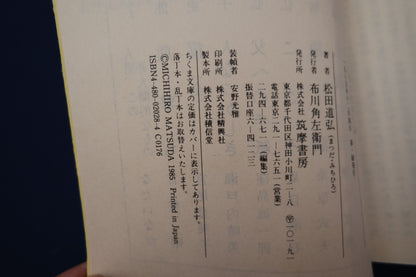 著者 松田道弘（まつだ・みちひろ）
発行者 布川角左衛門
発行所 株式会社 筑摩書房
東京都千代田区神田小川町二—八 〒一〇一—九一
電話東京二九一—七六五一（営業）
二九四—六七一一（編集）
振替口座六—四一二三
装幀者 安野光雅
印刷所 株式会社精興社
製本所 株式会社積信堂
ちくま文庫の定価はカバーに表示してあります。
落丁本・乱丁本はお取替えいたします。
©MICHIHIRO MATSUDA 1985 Printed in Japan
ISBN4-480-02028-4 C0176